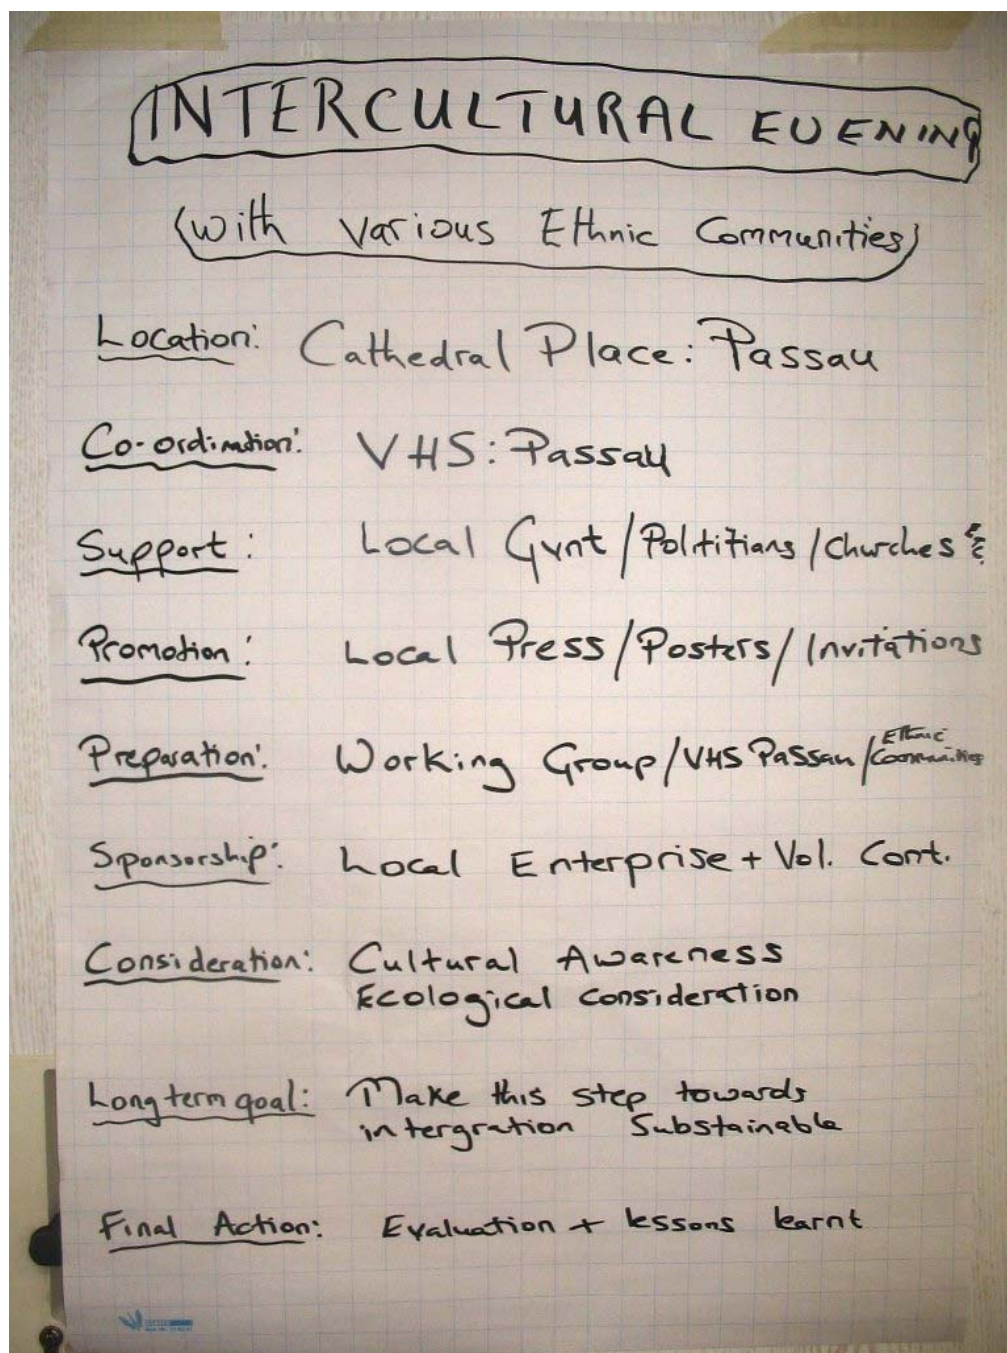 INTERCULTURAL EVENING
(With Various Ethnic Communities)
Location: Cathedral Place: Passau
Co-ordination: VHS: Passau
Support: Local Gvnt/Polititians/Churches &
Promotion: Local Press/Posters/Invitations
Preparation: Working Group/VHS Passau/Ethnic Communities
Sponsorship: Local Enterprise + Vol. Cont.
Consideration: Cultural Awareness
Ecological consideration
Long term goal: Make this step towards
intergration Substainable
Final Action: Evaluation + lessons learnt